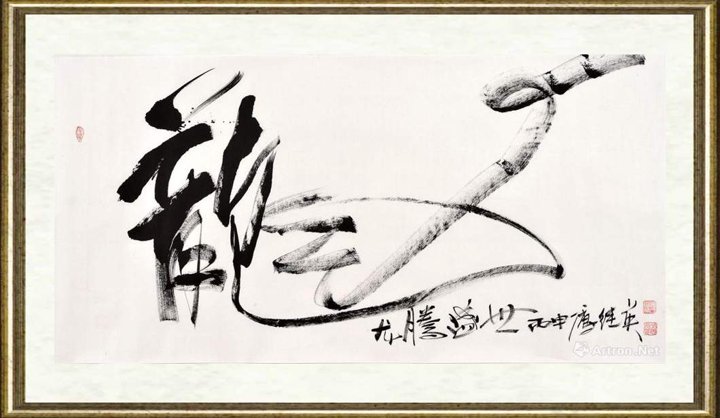 龍
龙腾盛世 丙申 唐继英
Artron.Net